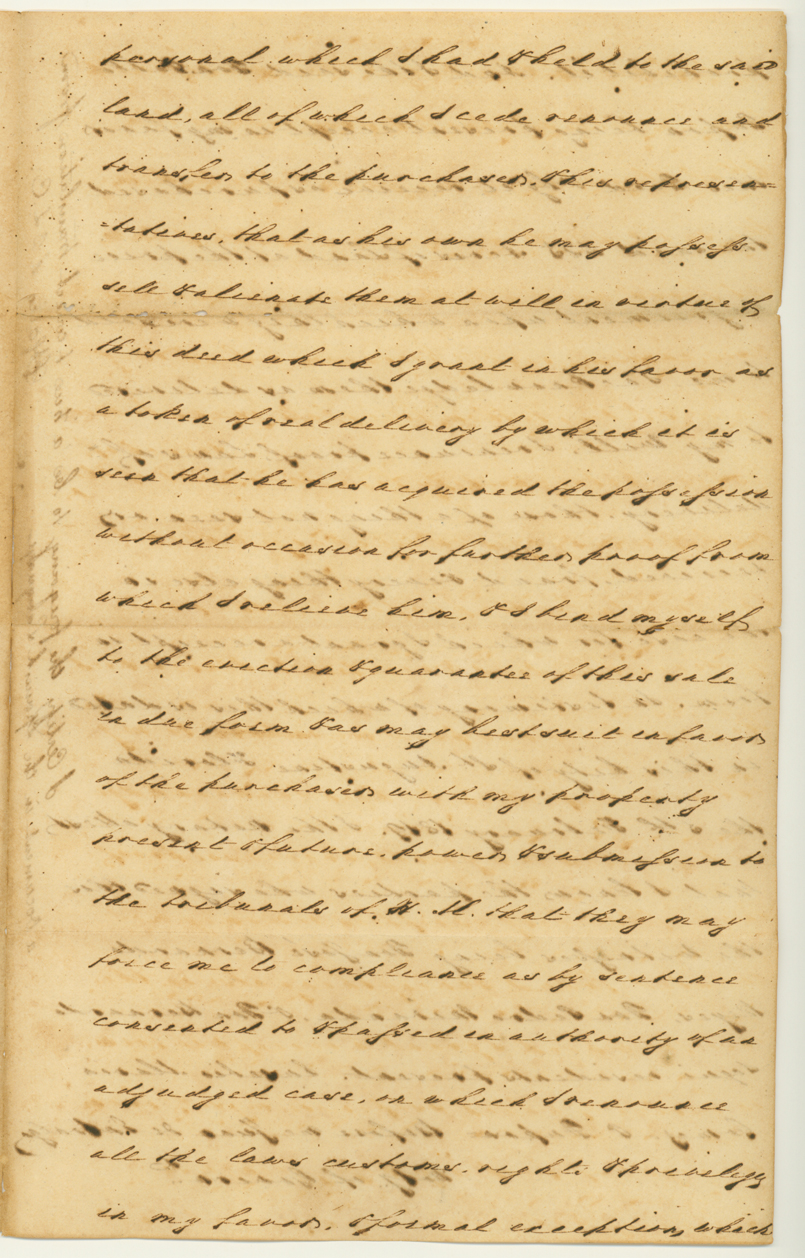 personal which I had & held to the said
land, all of which I cede renounce and
transfer to the purchaser, & his represen=
=tatives, that as his own he may possess
sell & alienate them at will in virtue of
this deed which I grant in his favor as
a token of real delivery by which it is
seen that he has acquired the possession
without occasion for further proof from
which I relieve him, & I bind myself
to the eviction & guarantee of this sale
in due form & as may best suit in favor
of the purchaser with my property
present & future, power & submission to
the tribunals of H. M. that they may
force me to compliance as by sentence
consented to & passed in authority of an
adjudged case, on which I renounce
all the laws customs, rights & privileges
in my favor, & formal exception, which